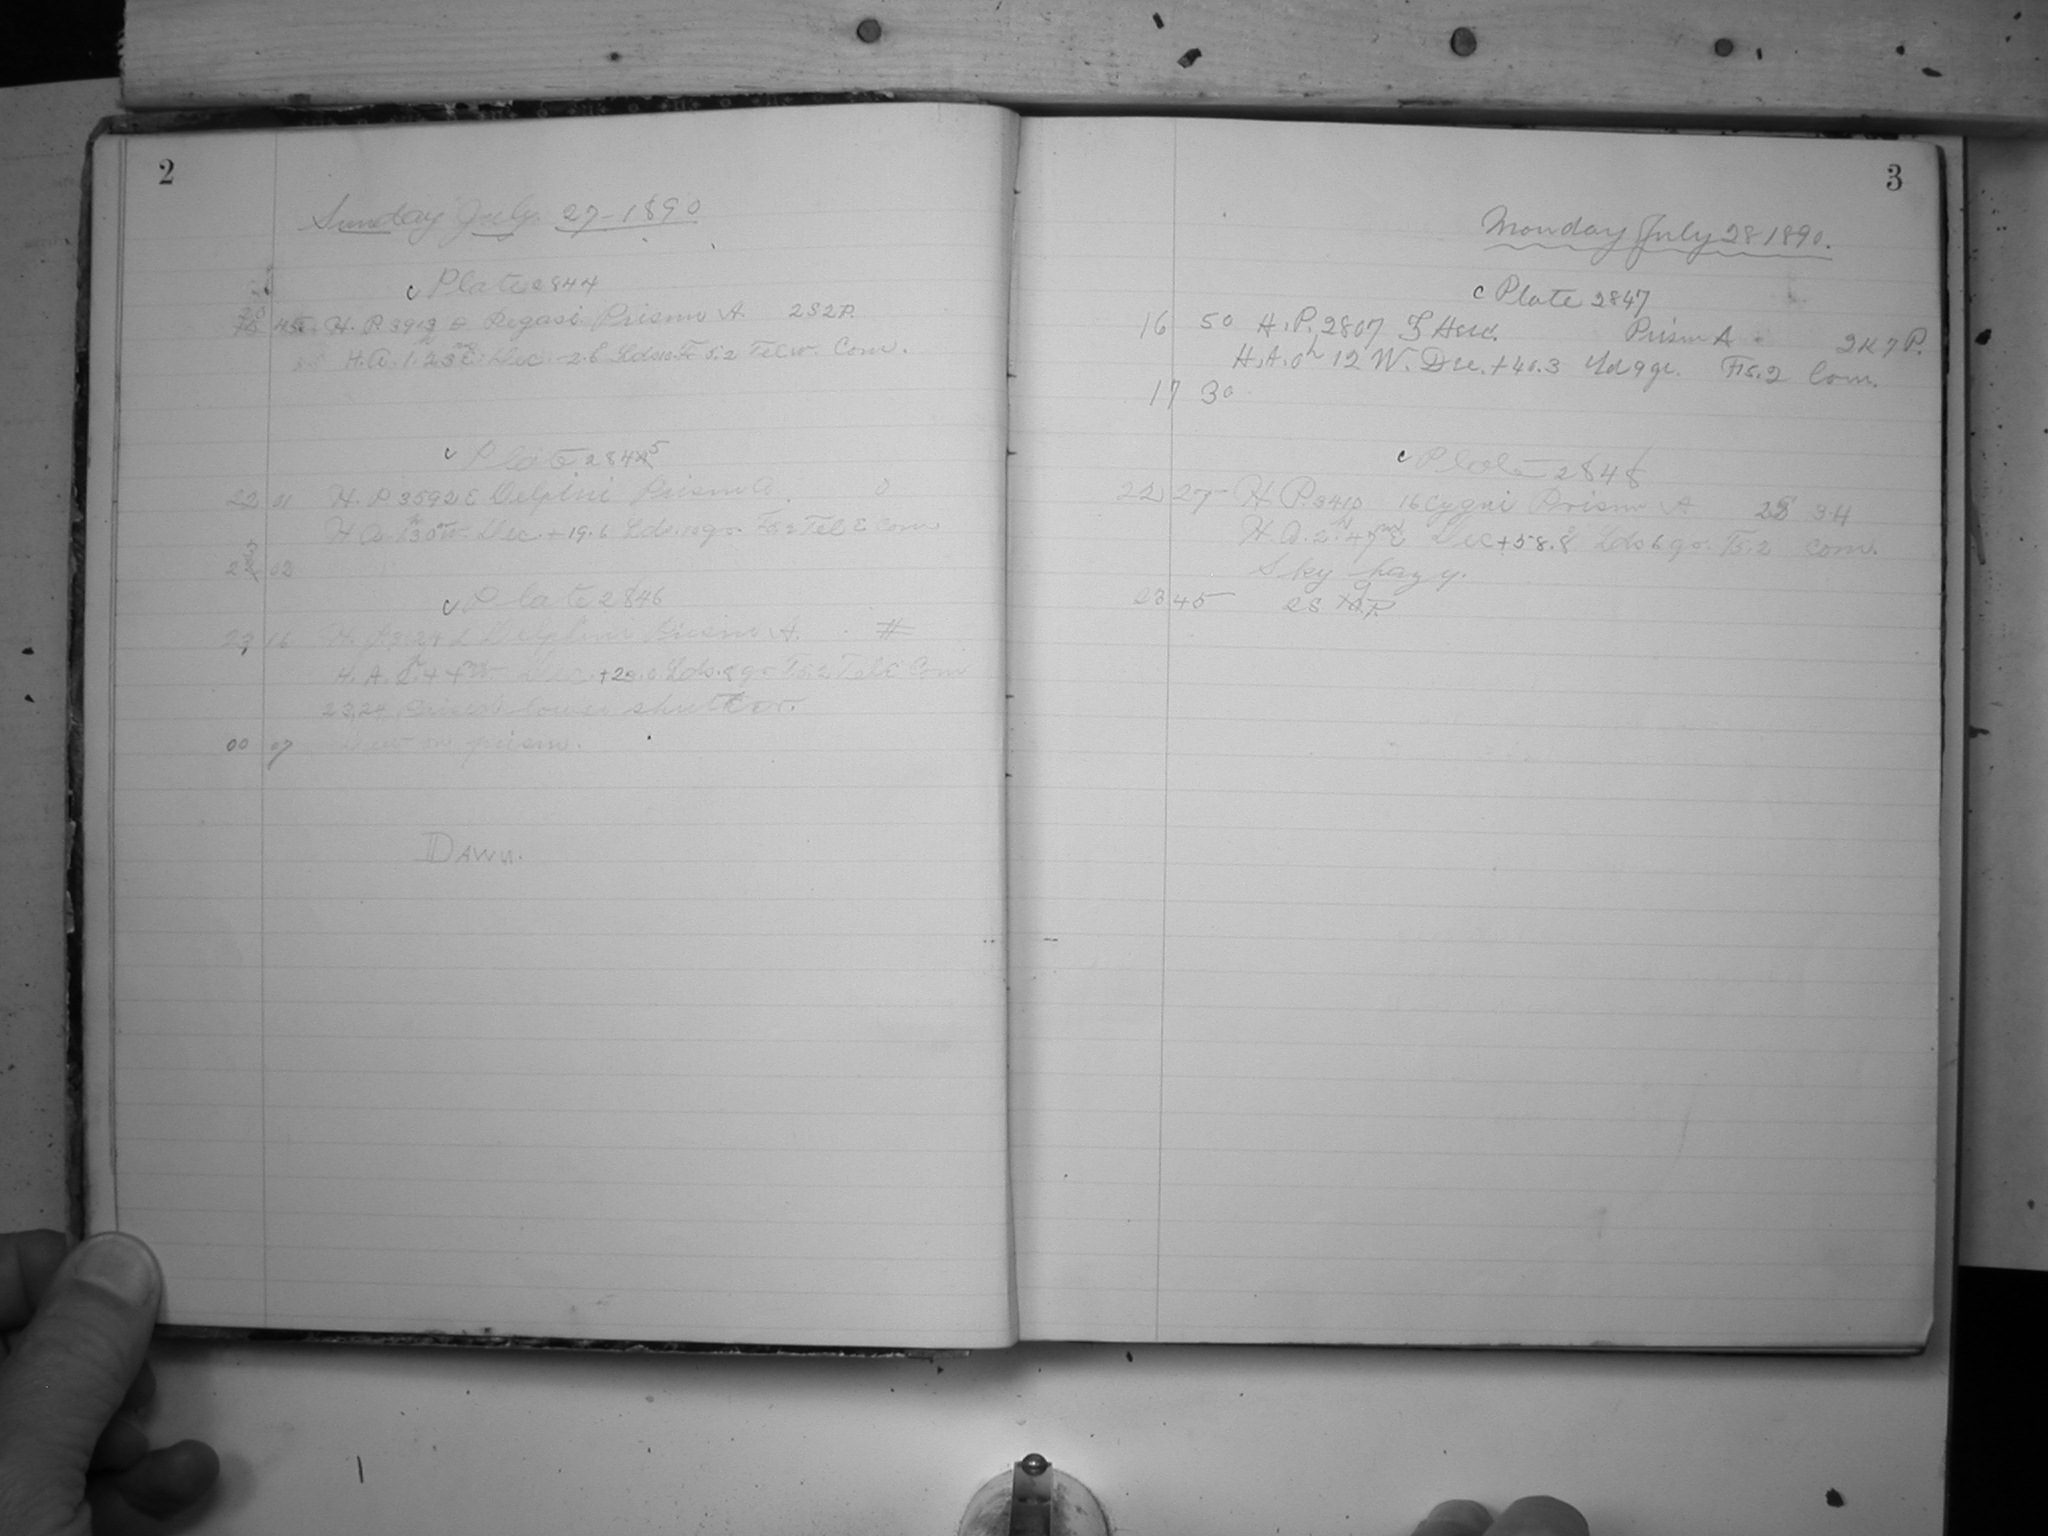 2
Sunday July 27-1890
c Plate 2844
45 H. P. 3912 θ Pegasi Prism A 2S2P.
H.A. 1.23 E. Dec. -2.6 Lds.10. F5.2 Tel W. Com.
c Plate 2845
22 01 H. P. 3592 ε Delphini Prism A. 0
H.A. 30 W. Dec. +19.6 Lds. 10 gr. F5.2 Tel E Com
02
c Plate 2846
23 16 H. P. Delphini Prism A. #
H. A. Dec. +23.0 Lds. 8 gr. F5.2 Tel E Com
23.24 lower shutter.
00 07 on prism.
DAWN.
3
Monday July 28 1890.
c Plate 2847
16 50 H. P. 2807 Herc. Prism A 2K7P.
H.A. 0h 12 W. Dec. +40.3 Yd 9 gr. F5.2 Com.
17 30
c Plate 2848
22 27 H. P. 3410 16 Cygni Prism A 2S 3H
H. A. 2h 47m E Dec +58.8 Lds 6 gr. F5.2 Com.
Sky hazy.
23 45 2S 9P.